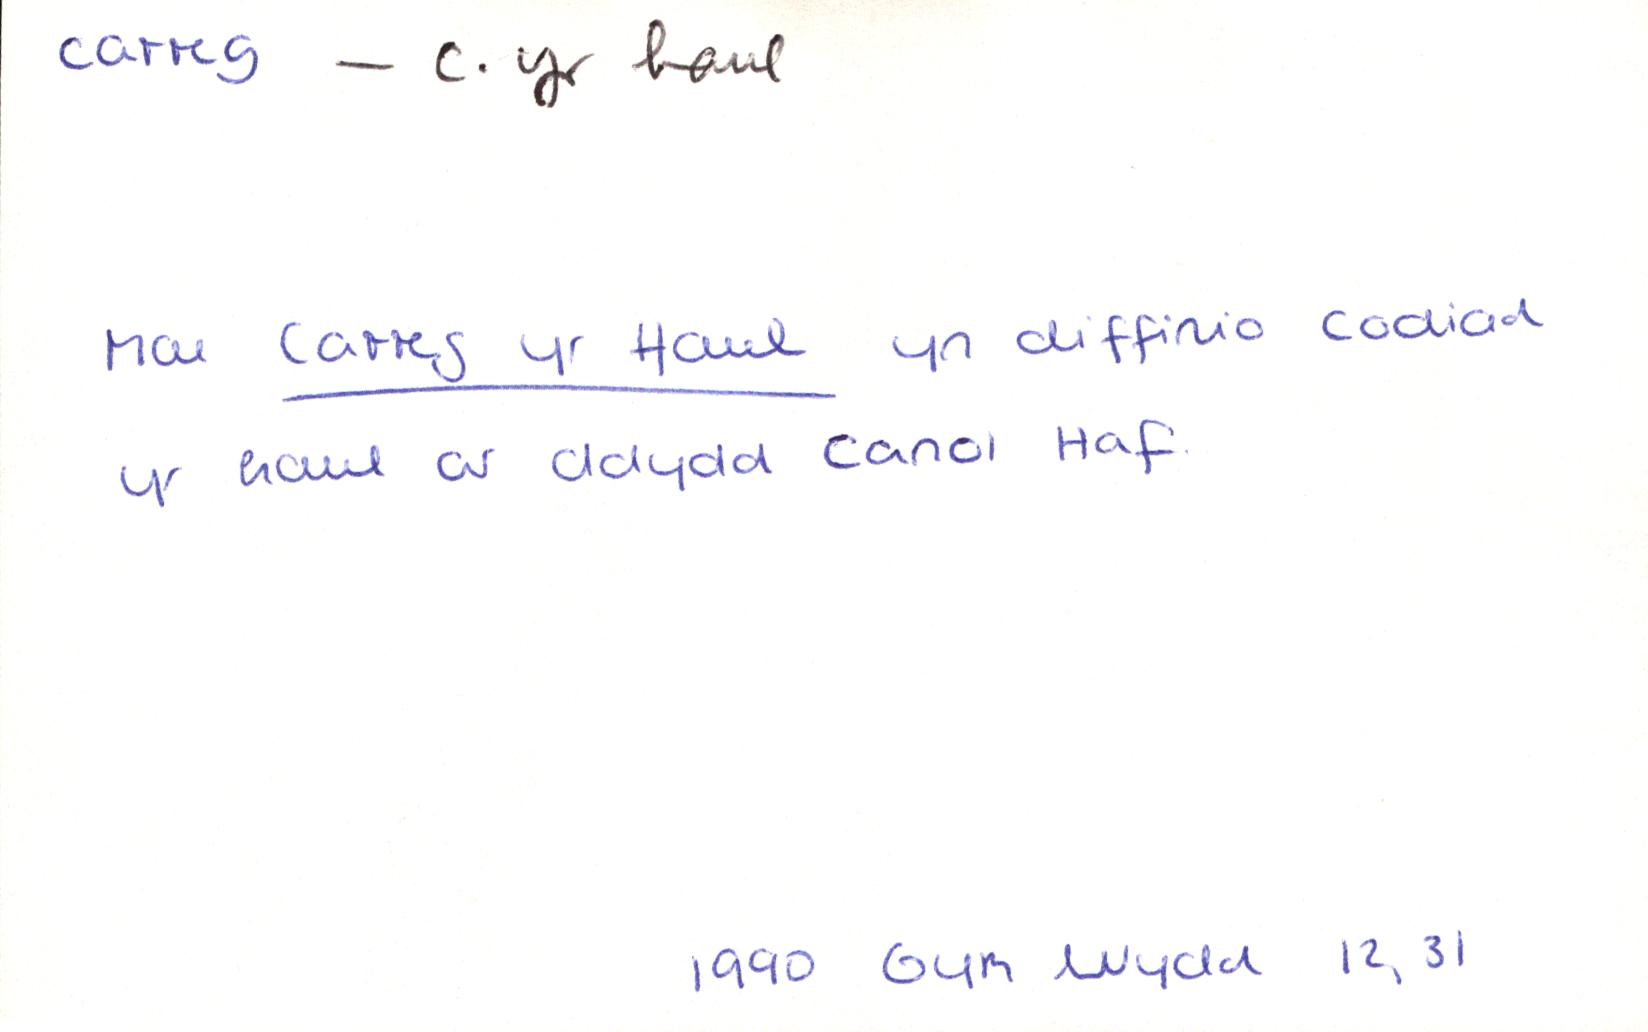 carreg — c. yr haul
Mae Carreg yr Haul yn diffinio codiad
yr haul ar ddydd Canol Haf.
1990 Gym Wydd 12, 31